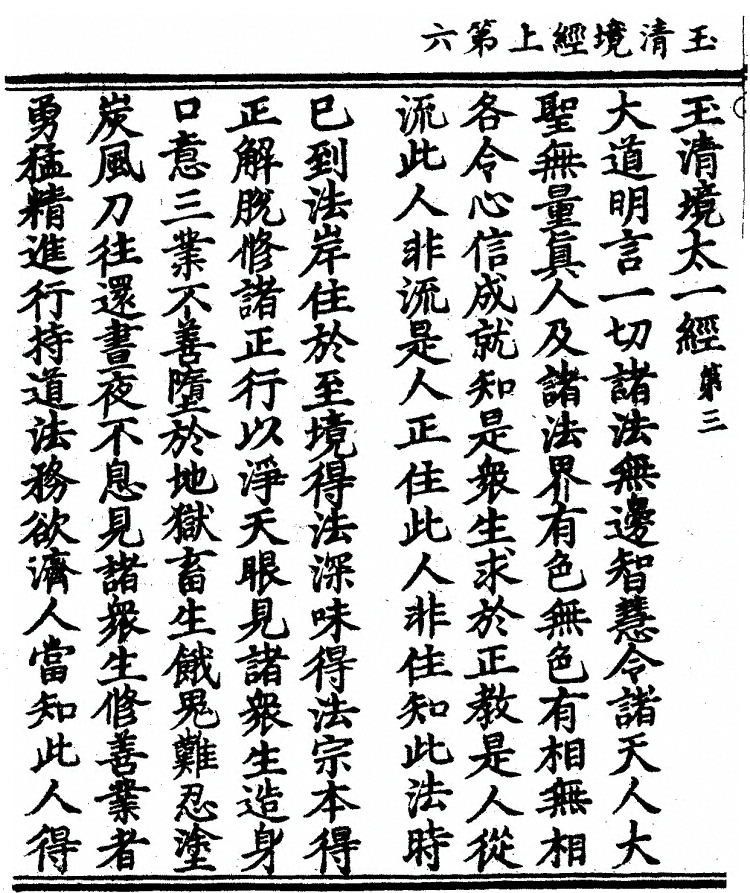 玉清境經上第六
玉清境太一經 第三
大道明言一切諸法無邊智慧令諸天人大
聖無量眞人及諸法界有色無色有相無相
各令心信成就知是衆生求於正教是人從
流此人非流是人正住此人非住知此法時
已到法岸住於至境得法深味得法宗本得
正解脫修諸正行以淨天眼見諸衆生造身
口意三業不善墮於地獄畜生餓鬼難忍塗
炭風刀往還晝夜不息見諸衆生修善業者
勇猛精進行持道法務欲濟人當知此人得